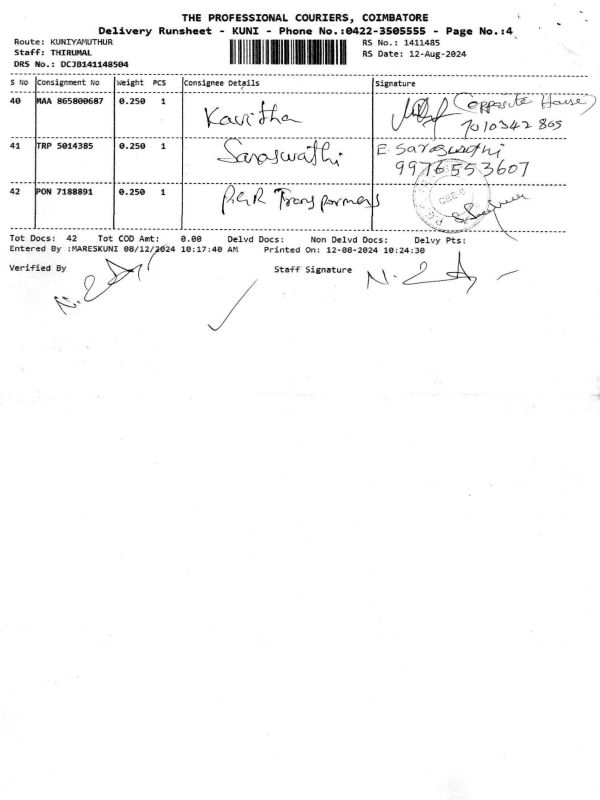 THE PROFESSIONAL COURIERS, COIMBATORE
Delivery Runsheet - KUNI - Phone No.:0422-3505555 - Page No.:4
Route: KUNIYAMUTHUR RS No.: 1411485
Staff: THIRUMAL RS Date: 12-Aug-2024
DRS No.: DCJB141148504
S No Consignment No Weight PCS Consignee Details Signature
40 MAA 865800687 0.250 1 Kavitha (opposite House)
7010342805
41 TRP 5014385 0.250 1 Saraswathi E. Saraswathi
9976553607
42 PON 7188891 0.250 1 Transformers
Tot Docs: 42 Tot COD Amt: 0.00 Delvd Docs: Non Delvd Docs: Delvy Pts:
Entered By :MARESKUNI 08/12/2024 10:17:40 AM Printed On: 12-08-2024 10:24:30
Verified By Staff Signature